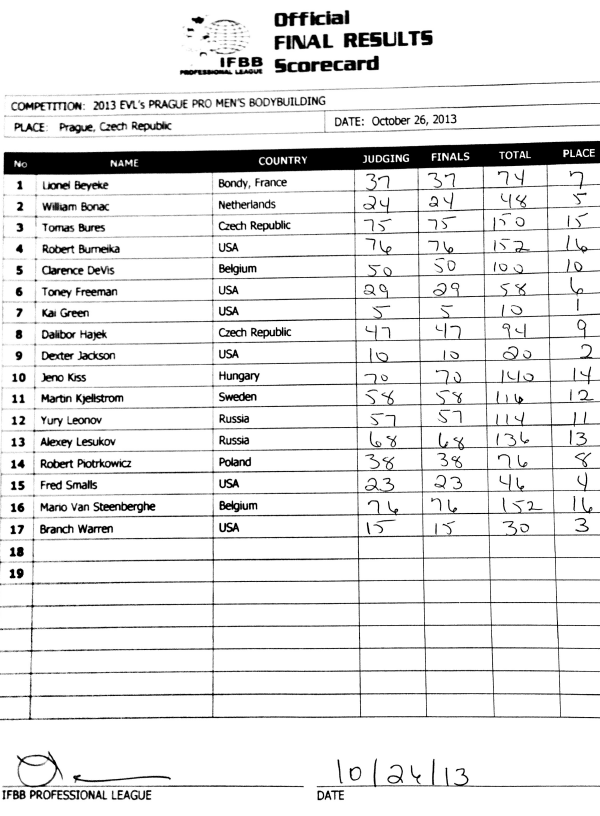 Official
FINAL RESULTS
Scorecard
IFBB
PROFESSIONAL LEAGUE
COMPETITION: 2013 EVL's PRAGUE PRO MEN'S BODYBUILDING
PLACE: Prague, Czech Republic DATE: October 26, 2013
No NAME COUNTRY JUDGING FINALS TOTAL PLACE
1 Lionel Beyeke Bondy, France 37 37 74 7
2 William Bonac Netherlands 24 24 48 5
3 Tomas Bures Czech Republic 75 75 150 15
4 Robert Burneika USA 76 76 152 16
5 Clarence DeVis Belgium 50 50 100 10
6 Toney Freeman USA 29 29 58 6
7 Kai Green USA 5 5 10 1
8 Dalibor Hajek Czech Republic 47 47 94 9
9 Dexter Jackson USA 10 10 20 2
10 Jeno Kiss Hungary 70 70 140 14
11 Martin Kjellstrom Sweden 58 58 116 12
12 Yury Leonov Russia 57 57 114 11
13 Alexey Lesukov Russia 68 68 136 13
14 Robert Piotrkowicz Poland 38 38 76 8
15 Fred Smalls USA 23 23 46 4
16 Mario Van Steenberghe Belgium 76 76 152 16
17 Branch Warren USA 15 15 30 3
18
19
10/26/13
IFBB PROFESSIONAL LEAGUE DATE